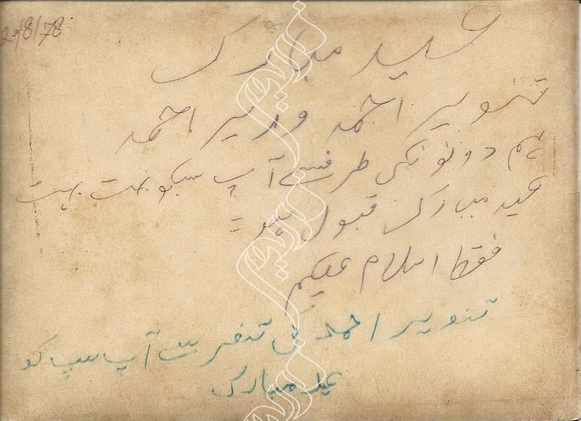 29/8/78
عید مبارک
تنویر احمد وزیر احمد
ہم دونوں کی طرف سے آپ سبکو بہت بہت
عید مبارک قبول ہو۔
فقط اسلام علیکم
تنویر احمد کی تفر سے آپ سب کو
عید مبارک